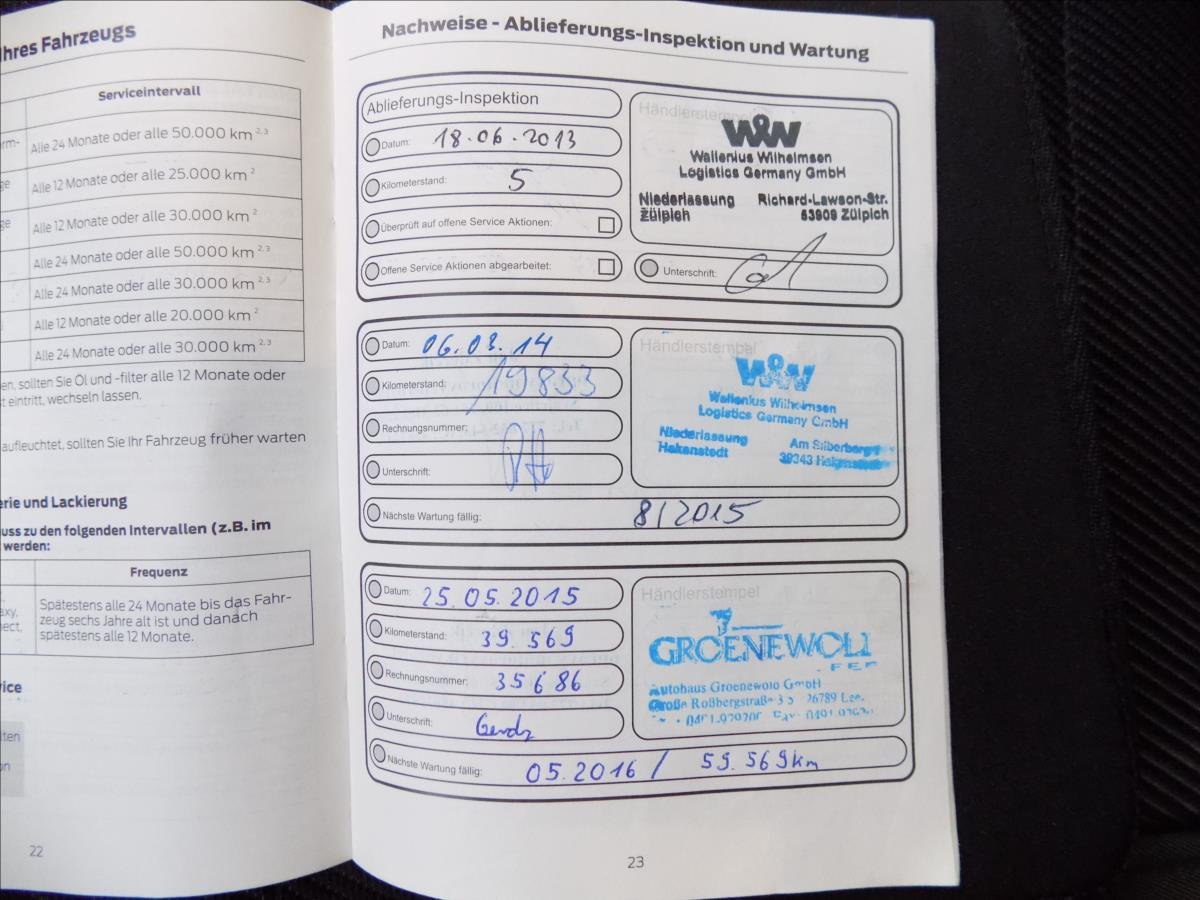 Ihres Fahrzeugs
Serviceintervall
Alle 24 Monate oder alle 50.000 km 2, 3
Alle 12 Monate oder alle 25.000 km 2
Alle 12 Monate oder alle 30.000 km 2
Alle 24 Monate oder alle 50.000 km 2, 3
Alle 24 Monate oder alle 30.000 km 2, 3
Alle 12 Monate oder alle 20.000 km 2
Alle 24 Monate oder alle 30.000 km 2, 3
en, sollten Sie Öl und -filter alle 12 Monate oder
t eintritt, wechseln lassen.
aufleuchtet, sollten Sie Ihr Fahrzeug früher warten
erie und Lackierung
uss zu den folgenden Intervallen (z.B. im
werden:
Frequenz
Spätestens alle 24 Monate bis das Fahr-
zeug sechs Jahre alt ist und danach
spätestens alle 12 Monate.
22
Nachweise - Ablieferungs-Inspektion und Wartung
Ablieferungs-Inspektion
Datum: 18.06.2013
Kilometerstand: 5
Überprüft auf offene Service Aktionen:
Offene Service Aktionen abgearbeitet:
Händlerstempel
WW
Wallenius Wilhelmsen
Logistics Germany GmbH
Niederlassung Richard-Lawson-Str.
Zülpich 53909 Zülpich
Unterschrift:
Datum: 06.03.14
Kilometerstand: 19833
Rechnungsnummer:
Unterschrift:
Händlerstempel
WW
Wallenius Wilhelmsen
Logistics Germany GmbH
Niederlassung Am Silberberg 1
Hakenstedt 39343
Nächste Wartung fällig: 8/2015
Datum: 25.05.2015
Kilometerstand: 39.569
Rechnungsnummer: 35686
Unterschrift:
Händlerstempel
GROENEWOLD
Autohaus Groenewold GmbH
Große Roßbergstraße 26789
Nächste Wartung fällig: 05.2016 / 59.569km
23